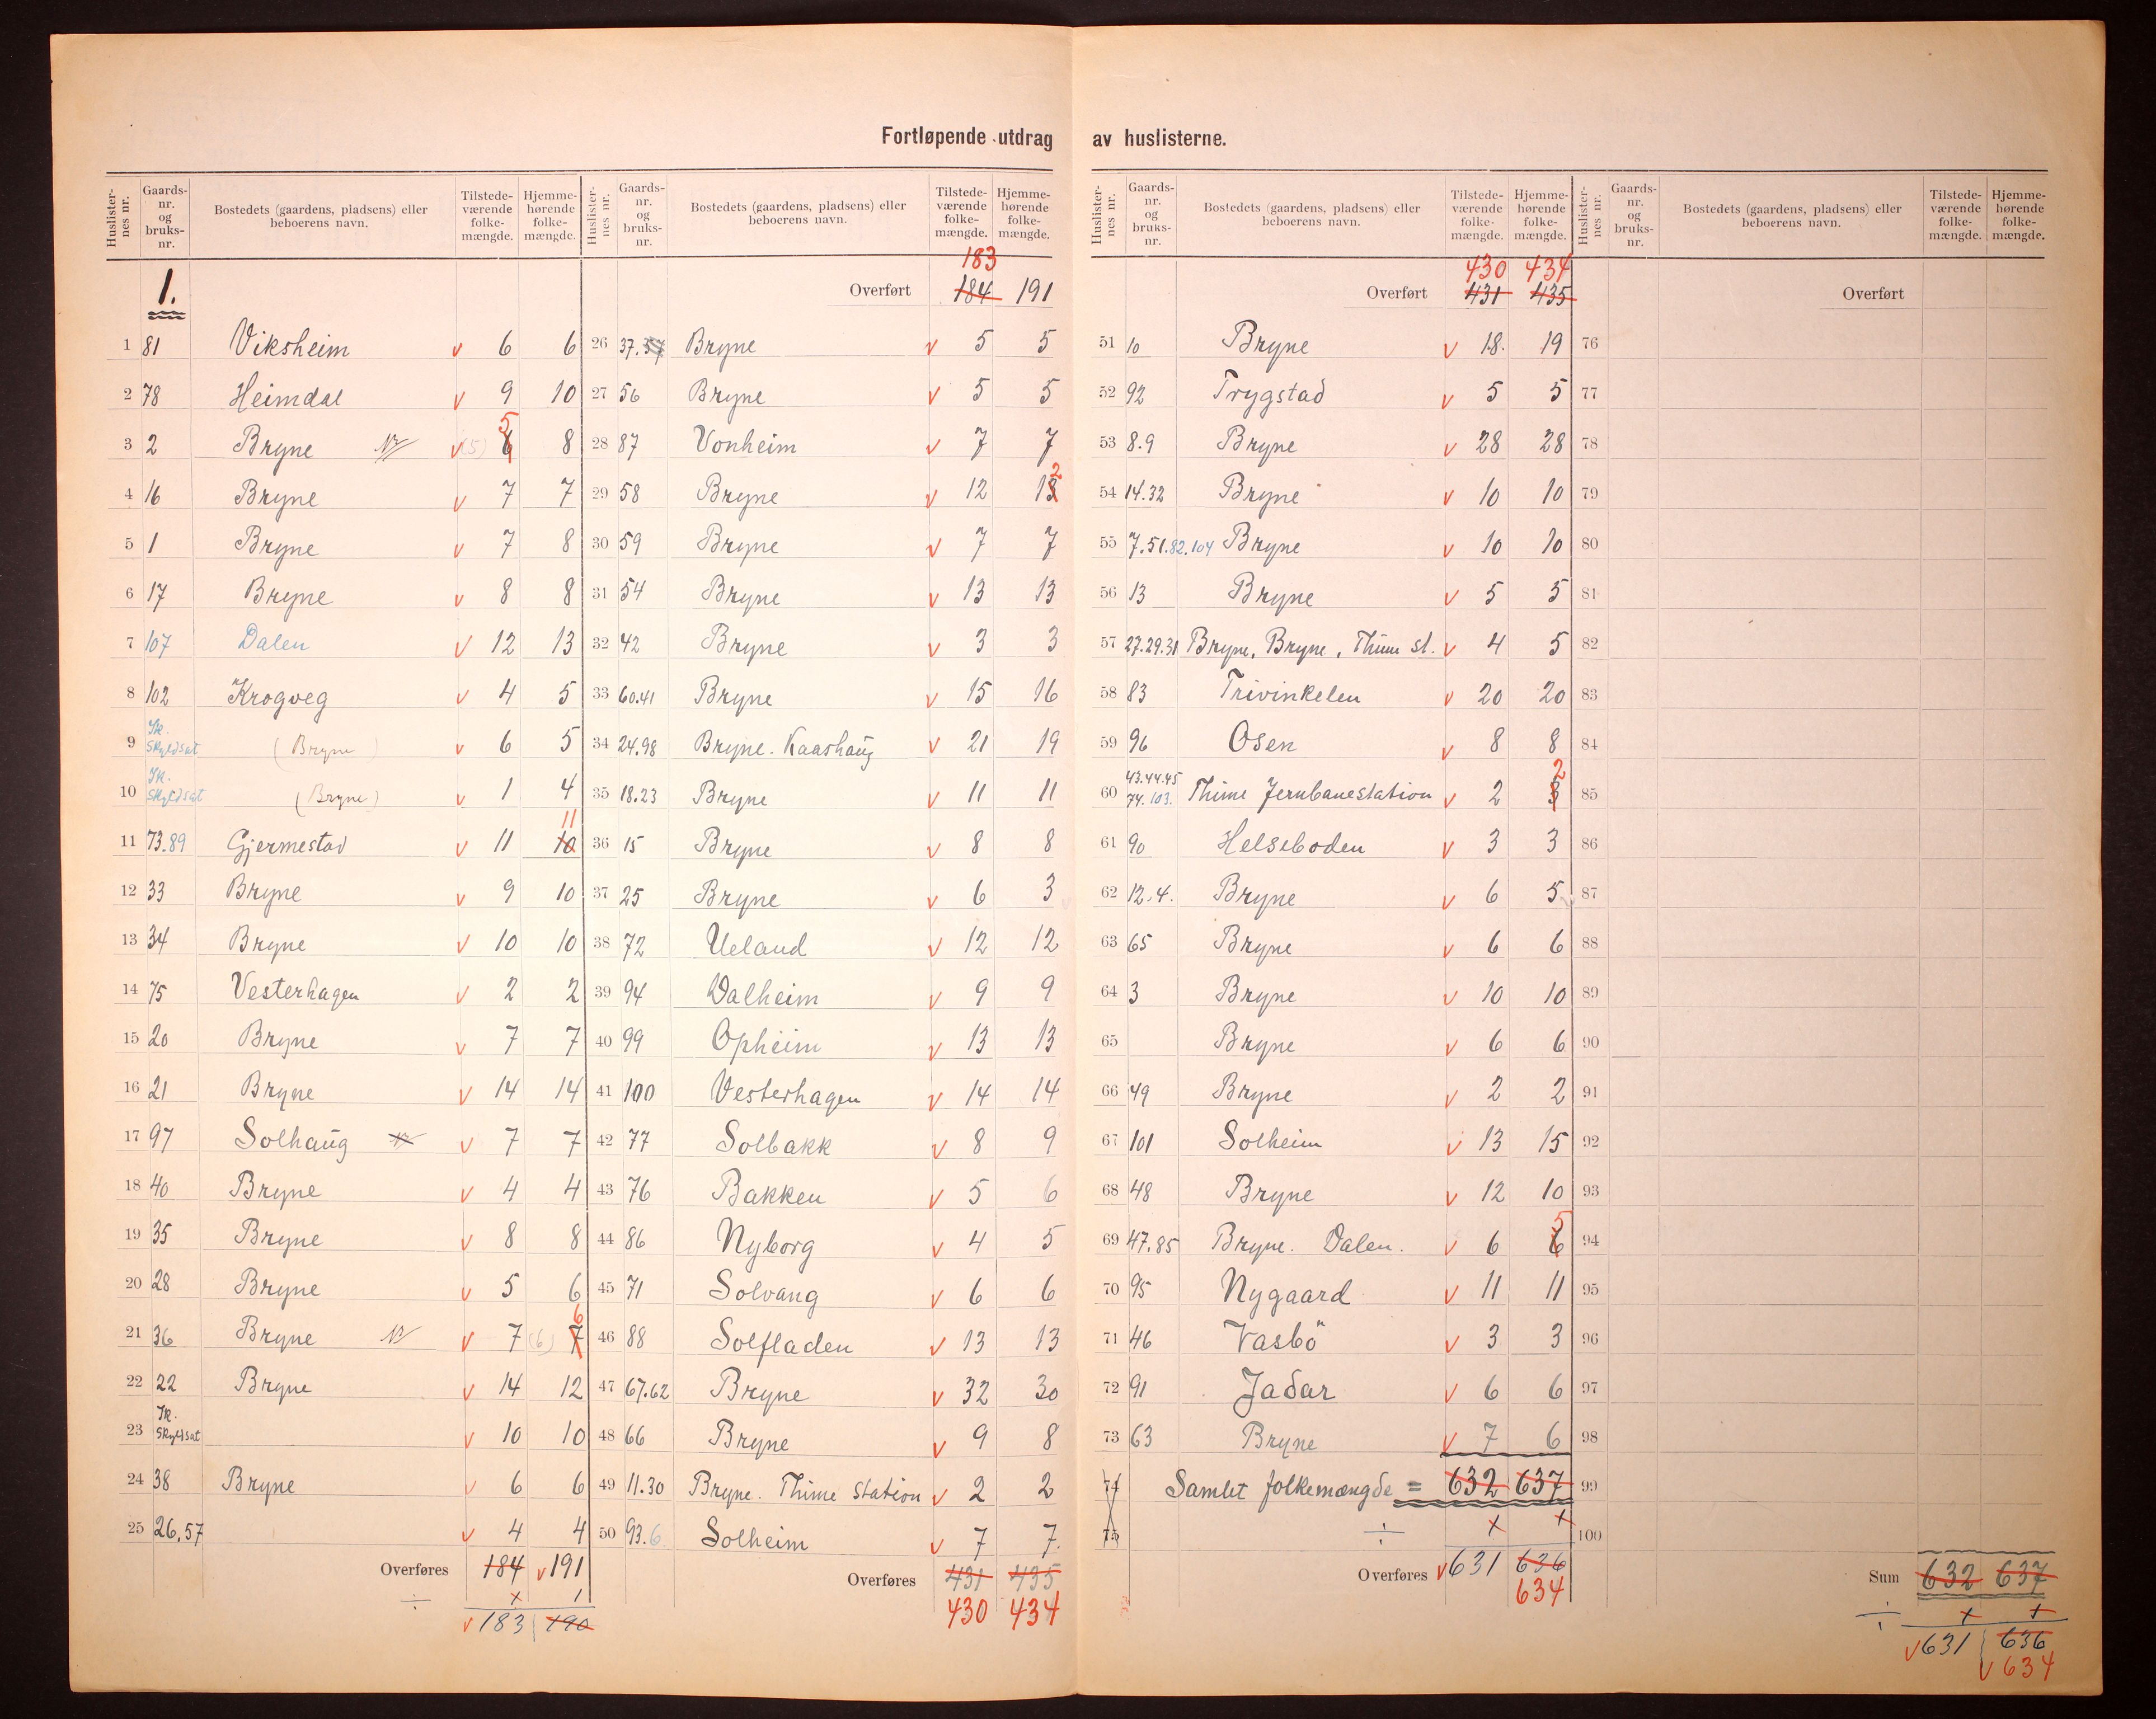 Fortløpende utdrag av huslisterne.
Huslister-nes nr. Gaards-nr. og bruks-nr. Bostedets (gaardens, pladsens) eller beboerens navn. Tilstede-værende folke-mængde. Hjemme-hørende folke-mængde.
1.
1 81 Viksheim v 6 6
2 78 Heimdal v 9 10
3 2 Bryne v (5) 6 5 8
4 16 Bryne v 7 7
5 1 Bryne v 7 8
6 17 Bryne v 8 8
7 107 Dalen v 12 13
8 102 Krogveg v 4 5
9 Ik. Skyldsat (Bryne) v 6 5
10 Ik. Skyldsat (Bryne) v 1 4
11 73.89 Gjermestad v 11 10 11
12 33 Bryne v 9 10
13 34 Bryne v 10 10
14 75 Vesterhagen v 2 2
15 20 Bryne v 7 7
16 21 Bryne v 14 14
17 97 Solhaug v 7 7
18 40 Bryne v 4 4
19 35 Bryne v 8 8
20 28 Bryne v 5 6
21 36 Bryne v 7 (6) 7 6
22 22 Bryne v 14 12
23 Ik. Skyldsat v 10 10
24 38 Bryne v 6 6
25 26.57 v 4 4
Overføres 184 v 191
÷ x 1
v 183 190
Huslister-nes nr. Gaards-nr. og bruks-nr. Bostedets (gaardens, pladsens) eller beboerens navn. Tilstede-værende folke-mængde. Hjemme-hørende folke-mængde.
183
Overført 184 191
26 37.57 Bryne v 5 5
27 56 Bryne v 5 5
28 87 Vonheim v 7 7
29 58 Bryne v 12 13 2
30 59 Bryne v 7 7
31 54 Bryne v 13 13
32 42 Bryne v 3 3
33 60.41 Bryne v 15 16
34 24.98 Bryne. Kaashaug v 21 19
35 18.23 Bryne v 11 11
36 15 Bryne v 8 8
37 25 Bryne v 6 3
38 72 Ueland v 12 12
39 94 Dalheim v 9 9
40 99 Opheim v 13 13
41 100 Vesterhagen v 14 14
42 77 Solbakk v 8 9
43 76 Bakken v 5 6
44 86 Nyborg v 4 5
45 71 Solvang v 6 6
46 88 Solfladen v 13 13
47 67.62 Bryne v 32 30
48 66 Bryne v 9 8
49 11.30 Bryne. Thime station v 2 2
50 93.6 Solheim v 7 7.
Overføres 431 435
430 434
Huslister-nes nr. Gaards-nr. og bruks-nr. Bostedets (gaardens, pladsens) eller beboerens navn. Tilstede-værende folke-mængde. Hjemme-hørende folke-mængde.
430 434
Overført 431 435
51 10 Bryne v 18. 19
52 92 Trygstad v 5 5
53 8.9 Bryne v 28 28
54 14.32 Bryne v 10 10
55 7.51.82.104 Bryne v 10 10
56 13 Bryne v 5 5
57 27.29.31 Bryne, Bryne, Thime st. v 4 5
58 83 Trivinkelen v 20 20
59 96 Osen v 8 8
60 43.44.45 74.103. Thime Jernbanestation v 2 3 2
61 90 Helseboden v 3 3
62 12.4. Bryne v 6 5
63 65 Bryne v 6 6
64 3 Bryne v 10 10
65 Bryne v 6 6
66 49 Bryne v 2 2
67 101 Solheim v 13 15
68 48 Bryne v 12 10
69 47.85 Bryne. Dalen. v 6 6 5
70 95 Nygaard v 11 11
71 46 Vasbö v 3 3
72 91 Jadar v 6 6
73 63 Bryne v 7 6
74 Samlet folkemængde = 632 637
75 ÷ x x
Overføres v 631 636
634
Huslister-nes nr. Gaards-nr. og bruks-nr. Bostedets (gaardens, pladsens) eller beboerens navn. Tilstede-værende folke-mængde. Hjemme-hørende folke-mængde.
Overført
76
77
78
79
80
81
82
83
84
85
86
87
88
89
90
91
92
93
94
95
96
97
98
99
100
Sum 632 637
÷ x x
v 631 636
v 634